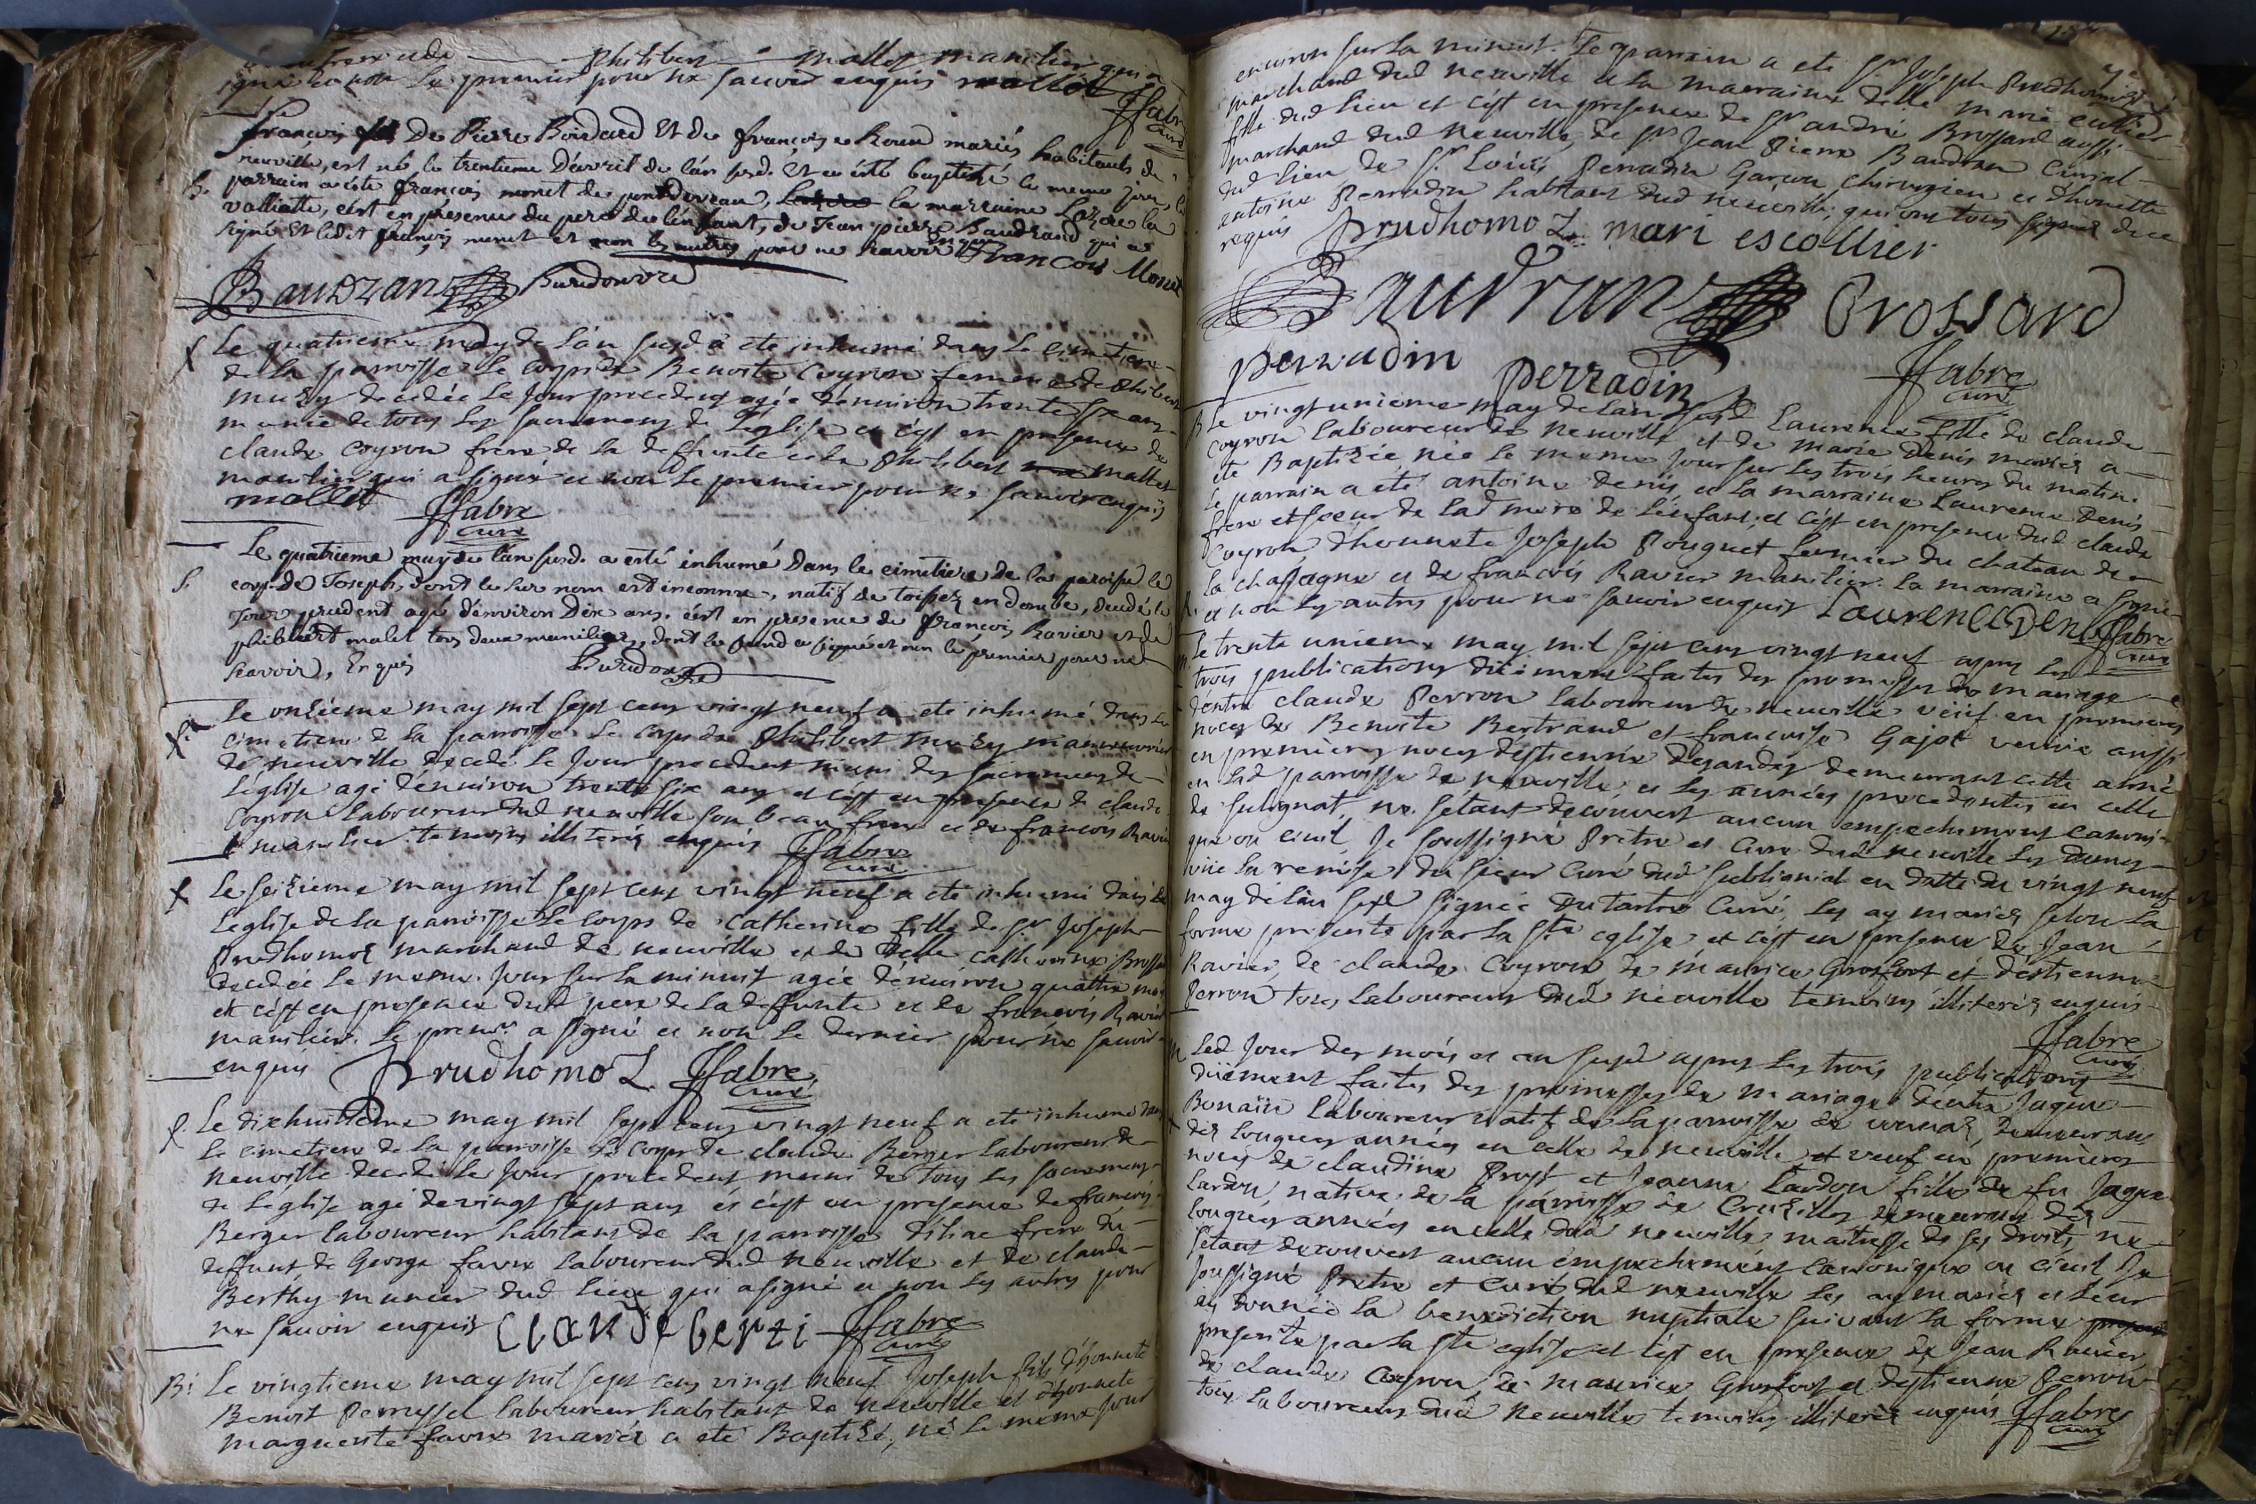 Philibert mallet manilier qui a
signé et non le premier pour ne savoir enquis mallet
ffabre
curé
françois fils De Pierre Boidard Et de françoise Roux mariés habitants de
neuville, est né le trentieme d'avril de l'an susd. et a été baptisé le meme jour, le
parrain a été françois monet de pontdeveau, la marraine Lazare la
valliatte, c'est en présence du pere de l'enfant, de Jean pierre Baudrand qui a
signé Et ledit françois monet et non les autres pour ne savoir enquis françois Monet
Baudran
B.
Le quatrieme may de l'an susd a eté inhumé dans le cimetiere
de la parroisse le corps de Benoite Coyron femme de Philibert
Muzy decedée le jour precedent agée d'environ trente six ans
munie de tous les sacremens de l'eglise et c'est en presence de
claude coyron frere de la deffunte et de Philibert mallet
manilier qui a signé et non le premier pour ne savoir enquis
mallet ffabre
curé
Le quatrieme may de l'an susd. a esté inhumé dans le cimetiere de la paroisse le
corps de Joseph, dont le sur nom est inconnu, natif de en dombe, decedé le
jour precedent agé d'environ dix ans, c'est en presence de françois Ravier et de
philibert malet tous deux maniliers, dont le second a signé et non le premier pour ne
scavoir, Enquis
S.
Le onzieme may mil sept cens vingt neuf a eté inhumé dans le
cimetiere de la parroisse le corps de Philibert Muzy manoeuvrier
de neuville decedé le jour precedent muni des sacremens de
l'eglise agé d'environ trente six ans et c'est en presence de claude
Coyron laboureur dud neuville son beau frere et de françois Ravier
manilier temoins illiterés enquis ffabre
curé
Le seizieme may mil sept cens vingt neuf a eté inhumé dans
l'eglise de la parroisse le corps de Catherine fille de Sr Joseph
Prudhomoz marchand de neuville et de Delle Catherine Brossard
decedée le meme jour sur la minuit agée d'environ quattre mois
et c'est en presence dud pere de la deffunte et de françois Ravier
manilier. Le premier a signé et non le dernier pour ne savoir
enquis Prudhomoz ffabre
curé
Le dixhuitieme may mil sept cens vingt neuf a eté inhumé dans
le cimetiere de la parroisse le corps de claude Berger laboureur de
Neuville decedé le jour precedent muni de tous les sacremens
de l'eglise agé de vingt sept ans et c'est en presence de françois
Berger laboureur habitant de la parroisse d'iliac frere du
deffunt de George favre laboureur dud Neuville et de claude
Berthy munier dud lieu qui a signé et non les autres pour
ne savoir enquis Claude berti ffabre
curé
B: Le vingtieme may mil sept cens vingt neuf Joseph fils d'honnete
Benoit Perrussel laboureur habitant de Neuville et d'honnete
marguerite favre mariés a eté Baptisé, né le meme jour
environ sur la minuit. Le parrain a eté Sr Joseph Prudhomoz
marchand dud neuville et la marraine delle marie
fille dud lieu et c'est en presence de Sr andré Brossard aussi
marchand dud Neuville, de Sr Jean Pierre Baudran
dud lieu de Sr Loüis Perradin Garçon chirurgien et d'honnette
antoine Perradin habitant dud neuville, qui ont tous signé de ce
requis Prudhomoz mari escollier
Baudran Brossard
perradin perradin ffabre
curé
B Le vingt unieme may de l'an susd Laurence fille de claude
Coyron laboureur de Neuville et de marie Denis mariés a
eté Baptisée née le meme jour sur les trois heures du matin.
le parrain a eté antoine denis et la marraine Laurence Denis
frere et soeur de lad mere de l'enfant, et c'est en presence dud claude
Coyron, d'honnete Joseph Pouguet fermier du chateau de
la chassagne et de françois Ravier manilier. la marraine a signé
et non les autres pour ne savoir enquis Laurence Denis ffabre
curé
M. Le trente unieme may mil sept cens vingt neuf apres les
trois publications düement faites des promesses de mariage
d'entre claude Perron laboureur de neuville veüf en premieres
noces de Benoite Bertrand et francoise Gajot veuve aussi
en premieres noces d'estienne dejandez demeurant cette année
en lad parroisse de neuville, et les années precedentes en celle
de sulignat, ne s'etant decouvert aucun empechement canoni
que ou civil, Je soussigné Prêtre et Curé dud neuville les
vüe la remise du sieur Curé dud Sublignat en datte du vingt neuf
may de l'an susd signée Dutartre Curé, les ay mariés selon la
forme prescrite par la ste eglise et c'est en presence de Jean
Ravier, de claude Coyron de maurice Grosfort et d'estienne
Perron tous Laboureurs dud neuville temoins illiterés enquis
ffabre
curé
M Led jour des mois et an susd apres les trois publications
düement faites des promesses de mariage d'entre Jaque
Bonain laboureur natif de la parroisse de vonnas, demeurant
des longues années en celle de neuville et veuf en premieres
noces de claudine Prost et Jeanne Lardon fille de fu Jaque
Lardon, native de la parroisse de Cruzilles demeurant des
longues années en celle dud neuville maitresse de ses droits, ne
s'etant decouvert aucun empechement canonique ou civil Je
soussigné Prêtre et Curé dud neuville les ay mariés et leur
ay donnée la benediction nuptiale suivant la forme
prescrite par la ste eglise et c'est en presence de Jean Ravier,
de claude Coyron, de maurice Grosfort et d'estienne Perron
tous laboureurs dud Neuville temoins illiterés enquis ffabre
curé